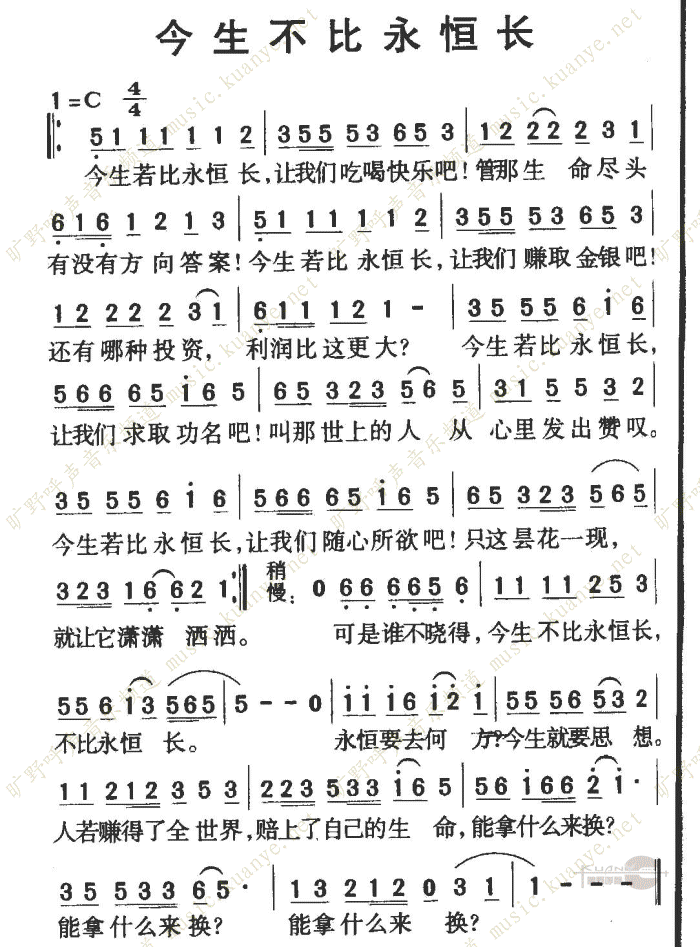 今生不比永恒长
1=C 4/4
5 1 1 1 1 1 1 2 | 3 5 5 5 3 6 5 3 | 1 2 2 2 2 3 1
今生若比永恒长,让我们吃喝快乐吧!管那生 命尽头
6 1 6 1 2 1 3 | 5 1 1 1 1 1 1 2 | 3 5 5 5 3 6 5 3
有没有方向答案!今生若比永恒长,让我们赚取金银吧!
1 2 2 2 2 3 1 | 6 1 1 1 2 1 - | 3 5 5 5 6 i 6
还有哪种投资, 利润比这更大? 今生若比永恒长,
5 6 6 6 5 i 6 5 | 6 5 3 2 3 5 6 5 | 3 1 5 5 3 2
让我们求取功名吧!叫那世上的人 从 心里发出赞叹。
3 5 5 5 6 i 6 | 5 6 6 6 5 i 6 5 | 6 5 3 2 3 5 6 5
今生若比永恒长,让我们随心所欲吧!只这昙花一现,
3 2 3 1 6 6 2 1 :‖ 稍慢: 0 6 6 6 6 6 5 6 | 1 1 1 1 2 5 3
就让它潇潇 洒洒。 可是谁不晓得,今生不比永恒长,
5 5 6 i 3 5 6 5 | 5 - - 0 | i i i 6 i 2 i | 5 5 5 6 5 3 2
不比永恒 长。 永恒要去何 方?今生就要思 想。
1 1 2 1 2 3 5 3 | 2 2 3 5 3 3 i 6 5 | 5 6 i 6 6 2 i ·
人若赚得了全世界,赔上了自己的生 命,能拿什么来换?
3 5 5 3 3 6 5 · | 1 3 2 1 2 0 3 1 | 1 - - -
能拿什么来 换? 能拿什么来 换?
旷野呼声音乐频道 music.kuanye.net